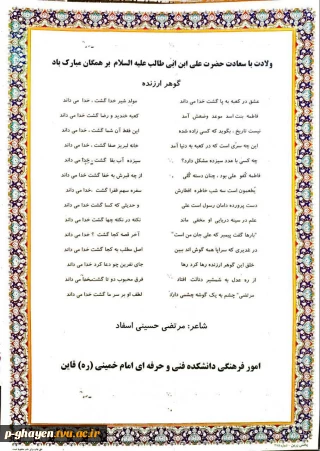 ولادت با سعادت حضرت علی ابن ابی طالب علیه السلام بر همگان مبارک باد
گوهر ارزنده
عشق در کعبه به پا گشت خدا می داند مولد شیر خدا گشت ، خدا می داند
فاطمه بنت اسد موعد وضعش آمد کعبه خندید و رضا گشت خدا می داند
نیست تاریخ ، بگوید که کسی زاده شده این فقط آن شما گشت ، خدا می داند
این چه سری است که در کعبه به دنیا آمد خانه لبریز صفا گشت ، خدا می داند
چه کسی با عدد سیزده مشکل دارد؟ سیزده گشت خدا می داند
فاطمه کفو علی بود ، چنان دسته گلی از چه قبرش به خفا گشت خدا می داند
افطارش سفره سهم فقرا گشت خدا می داند
دست پرورده دامان رسول است علی و حدیثی که کسا گشت خدا می داند
علم در سینه دریایی او مخفی ماند نکته در نکته چها گشت خدا می داند
"بارها گفت پیمبر که علی جان من است" آخر قصه کجا گشت خدا می داند
در غدیری که سراپا همه گوش اند ببین اصل مطلب به کجا گشت خدا می داند
خلق این گوهر ارزنده رها کرد رها جای نفرین چو دعا کرد خدا می داند
از ره عدل به شمشیر افتاد فرق محبوب دو تا گشت خدا می داند
مرتضی" چشم به یک گوشه چشمی دارد لطف او بر سر ما گشت خدا می داند
شاعر: مرتضی حسینی اسفاد
امور فرهنگی دانشکده فنی و حرفه ای امام خمینی (ره) قاین
p-ghayen.tvu.ac.ir